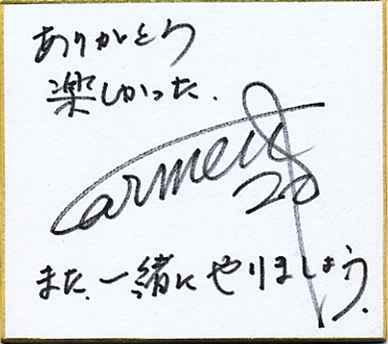 ありがとう
楽しかった.
Carmen
20
また、一緒にやりましょう.